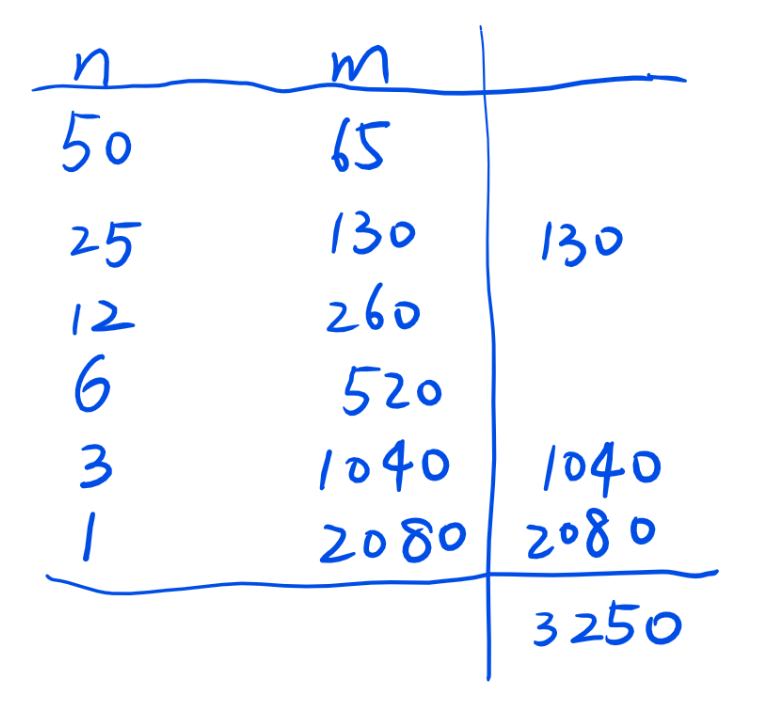 n m
50 65
25 130 130
12 260
6 520
3 1040 1040
1 2080 2080
3250